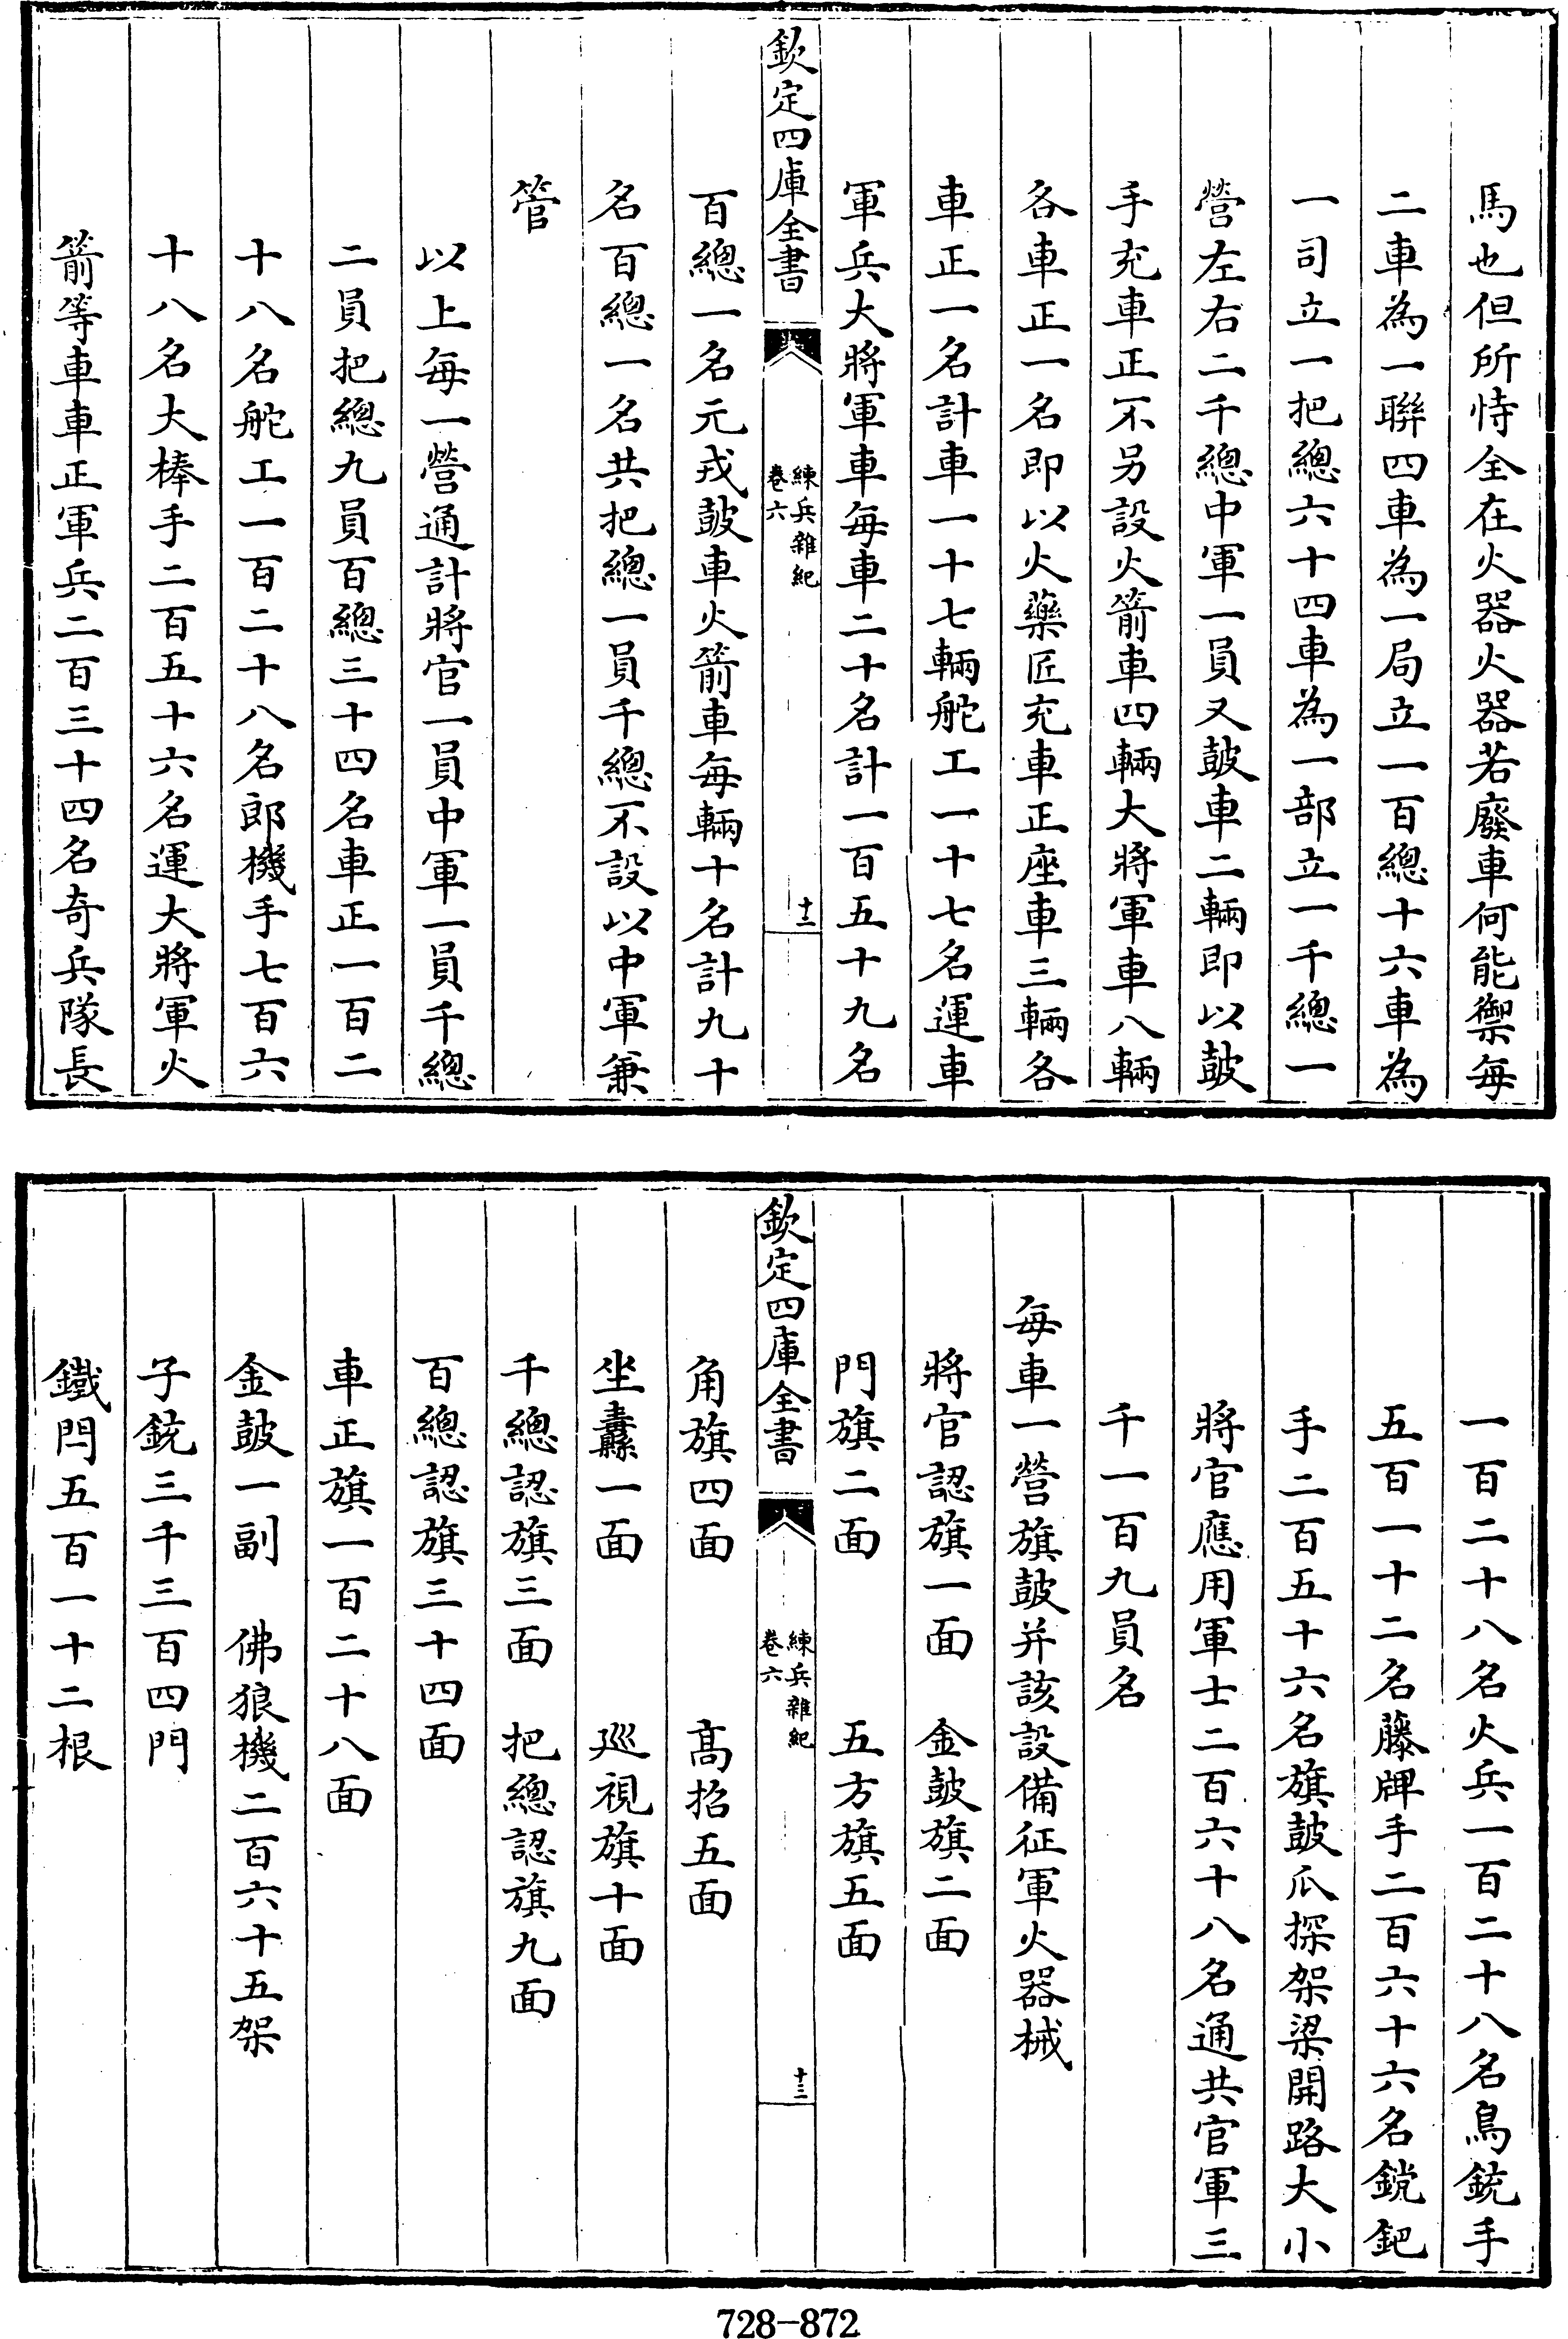 馬也但所恃全在火器火器若廢車何能禦每
二車為一聯四車為一局立一百總十六車為
一司立一把總六十四車為一部立一千總一
營左右二千總中軍一員又鼓車二輛即以鼓
手充車正不另設火箭車四輛大將軍車八輛
各車正一名即以火藥匠充車正座車三輛各
車正一名計車一十七輛舵工一十七名運車
軍兵大將軍車每車二十名計一百五十九名
欽定四庫全書
練兵雜紀
卷六
十二
百總一名元戎鼓車火箭車每輛十名計九十
名百總一名共把總一員千總不設以中軍兼
管
以上每一營通計將官一員中軍一員千總
二員把總九員百總三十四名車正一百二
十八名舵工一百二十八名郎機手七百六
十八名大棒手二百五十六名運大將軍火
箭等車車正軍兵二百三十四名奇兵隊長
一百二十八名火兵一百二十八名鳥銃手
五百一十二名藤牌手二百六十六名鎲鈀
手二百五十六名旗鼓爪探架梁開路大小
將官應用軍士二百六十八名通共官軍三
千一百九員名
每車一營旗鼓并該設備征軍火器械
將官認旗一面　金鼓旗二面
門旗二面　五方旗五面
欽定四庫全書
練兵雜紀
卷六
十三
角旗四面　高招五面
坐纛一面　巡視旗十面
千總認旗三面　把總認旗九面
百總認旗三十四面
車正旗一百二十八面
金鼓一副　佛狼機二百六十五架
子銃三千三百四門
鐵閂五百一十二根
728-872